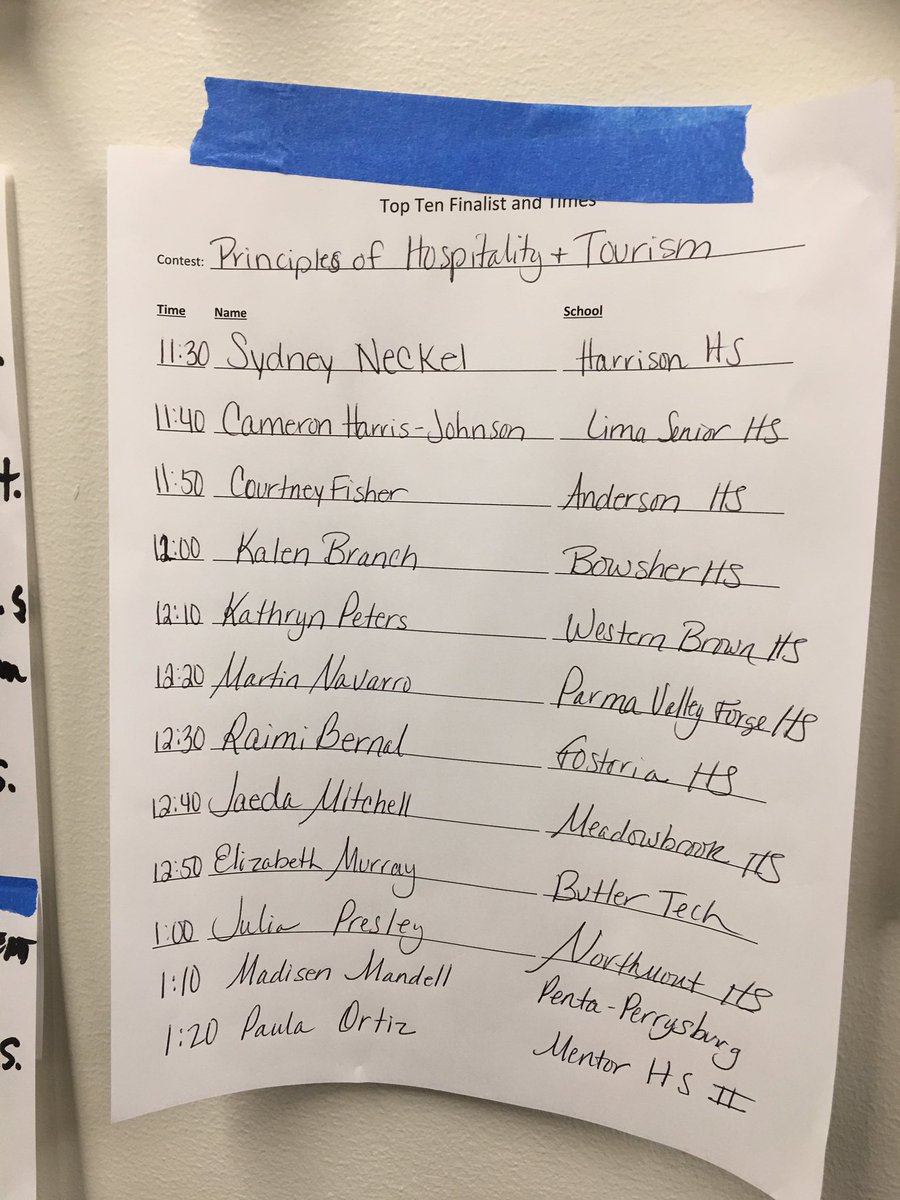 Top Ten Finalist and Times
Contest: Principles of Hospitality + Tourism
Time Name School
11:30 Sydney Neckel Harrison HS
11:40 Cameron Harris-Johnson Lima Senior HS
11:50 Courtney Fisher Anderson HS
12:00 Kalen Branch Bowsher HS
12:10 Kathryn Peters Western Brown HS
12:20 Martin Navarro Parma Valley Forge HS
12:30 Raimi Bernal Fostoria HS
12:40 Jaeda Mitchell Meadowbrook HS
12:50 Elizabeth Murray Butler Tech
1:00 Julia Presley Northmont HS
1:10 Madisen Mandell Penta-Perrysburg
1:20 Paula Ortiz Mentor HS II